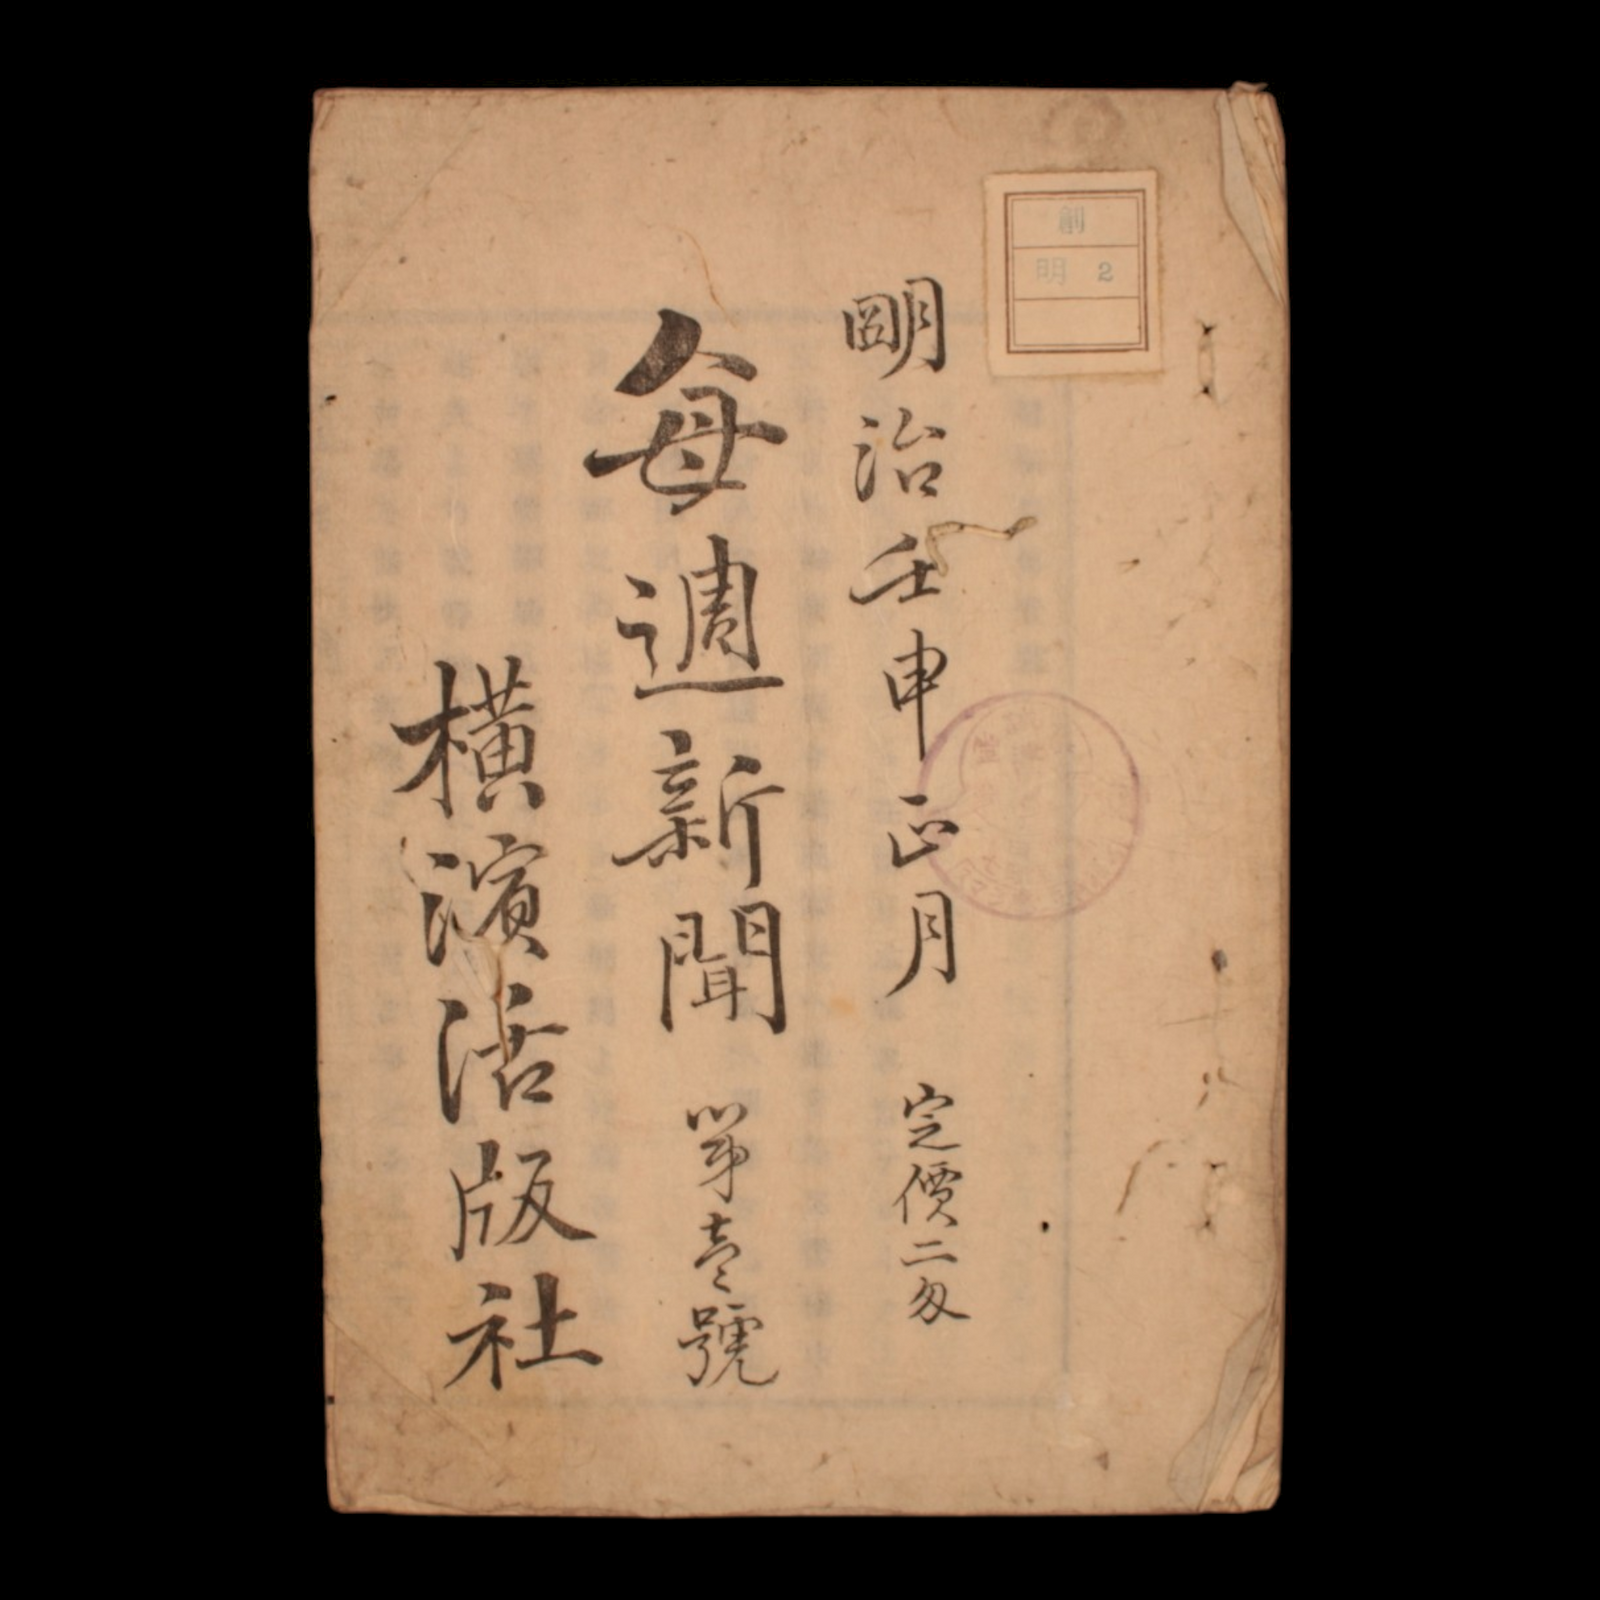 創
明 2
明治壬申正月 定價二匁
毎週新聞 第壹號
横濱活版社